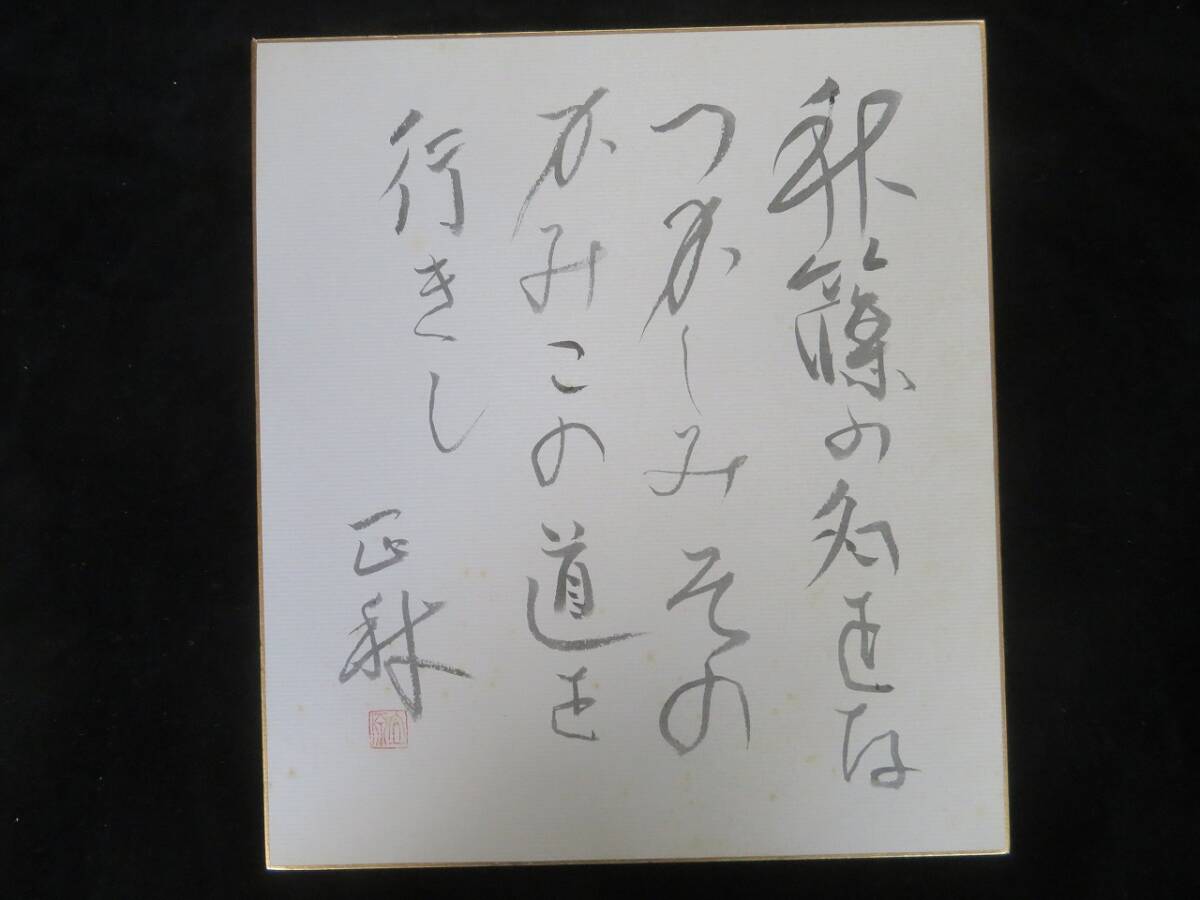 秋篠の名をな
つかしみその
かみこの道を
行きし
正秋